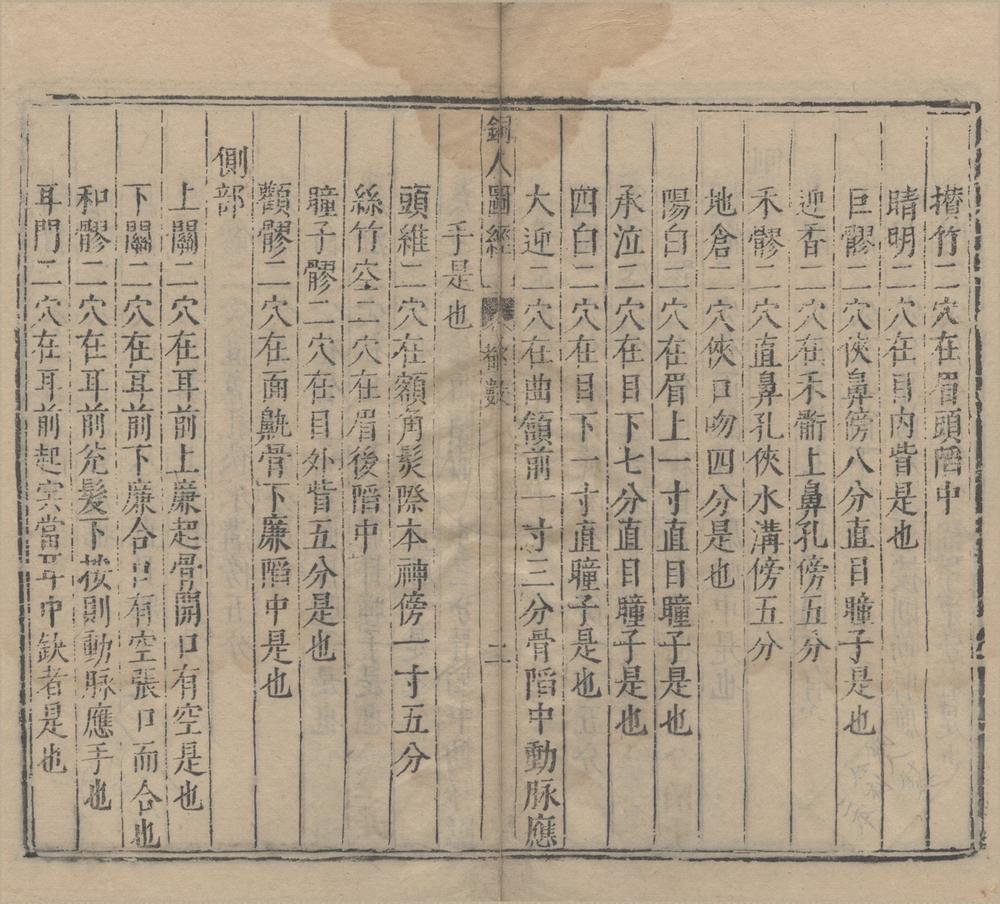 攅竹二穴在眉頭陷中
睛明二穴在目内眥是也
巨髎二穴俠鼻傍八分直目瞳子是也
迎香二穴在禾髎上鼻孔傍五分
禾髎二穴直鼻孔俠水溝傍五分
地倉二穴俠口吻四分是也
陽白二穴在眉上一寸直目瞳子是也
承泣二穴在目下七分直目瞳子是也
四白二穴在目下一寸直瞳子是也
大迎二穴在曲頷前一寸三分骨陷中動脉應
銅人圖經 卷 都數 二
手是也
頭維二穴在額角髮際本神傍一寸五分
絲竹空二穴在眉後陷中
瞳子髎二穴在目外眥五分是也
顴髎二穴在面鼽骨下廉陷中是也
側部
上關二穴在耳前上廉起骨開口有空是也
下關二穴在耳前下廉合口有空張口而合也
和髎二穴在耳前兊髮下按則動脉應手也
耳門二穴在耳前起宍當耳中缺者是也